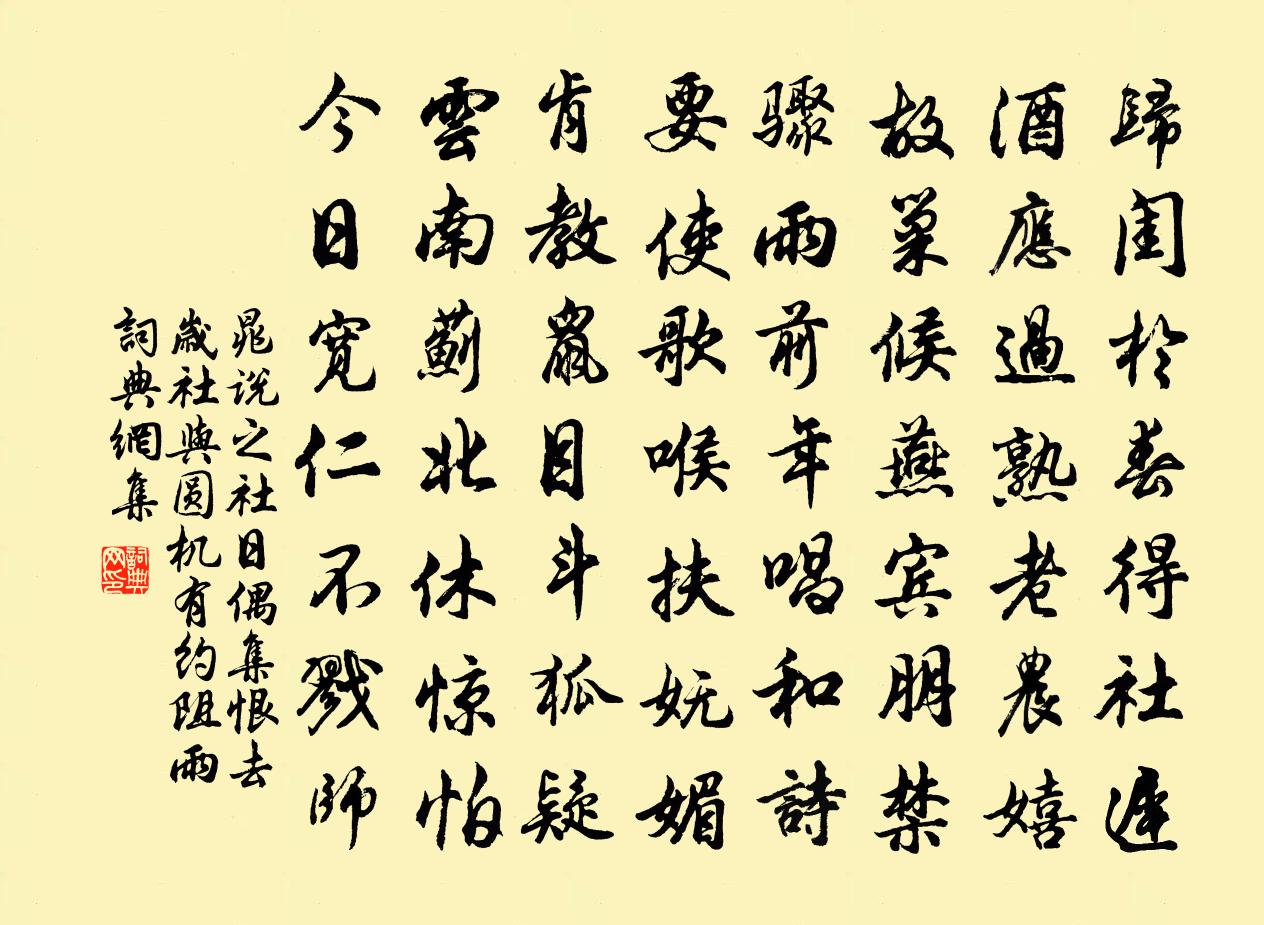 歸閏於春得社遲
酒應過熟老農嬉
故巢候燕賓朋禁
驟雨前年唱和詩
要使歌喉扶妩媚
肯教鼠目斗狐疑
雲南薊北休惊怕
今日寬仁不戮師
晁說之社日偶集恨去
歲社與圓机有約阻雨
詞典網集
詞典网印